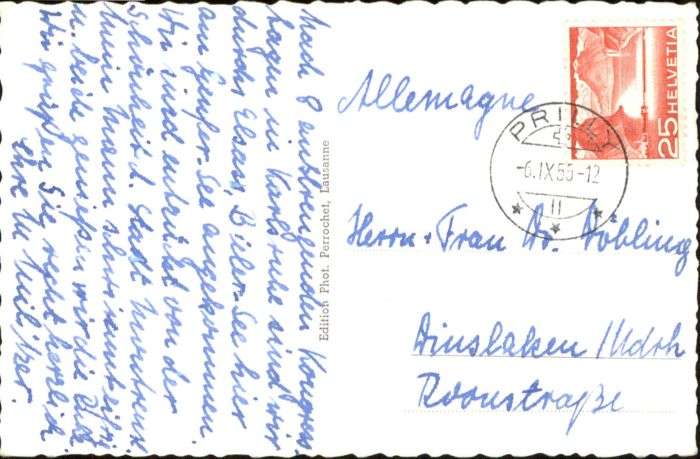 Nach 8 anstrengenden Kongress
tagen in Karlsruhe sind wir
durchs Elsass, Bieler-See hier
am Genfer-See angekommen.
Wir sind entzückt von der
Schönheit d. Stadt Montreux
Mein Mann
u. beide genießen wir die
Wir grüßen Sie recht herzlich
Ihre
Edition Phot. Perrochet, Lausanne
Allemagne
HELVETIA
25
PRILLY
-6.IX.55-12
II
Herrn + Frau Dr. Dobling
Dinslaken / Ndrh
Roonstraße